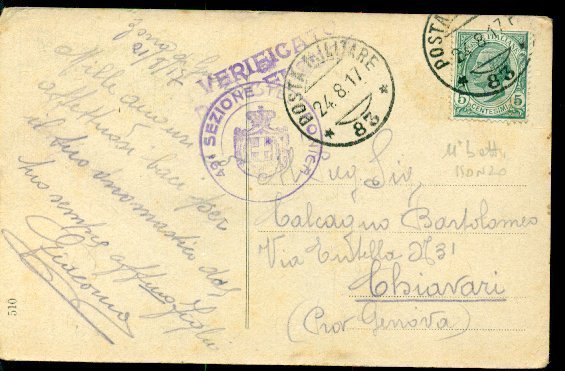 Zona di guerra
21/8/17
Mille auguri
affettuosi baci per
il tuo onomastico dal
tuo sempre affmo figlio
Giacomo
VERIFICATO
49ª SEZIONE TELEFONICA
POSTA MILITARE
24.8.17
83
POSTA MILITARE
24.8.17
83
5 CENTESIMI 5
Sig
Calcagno Bartolomeo
Via Entella N 31
Chiavari
(Prov Genova)
510